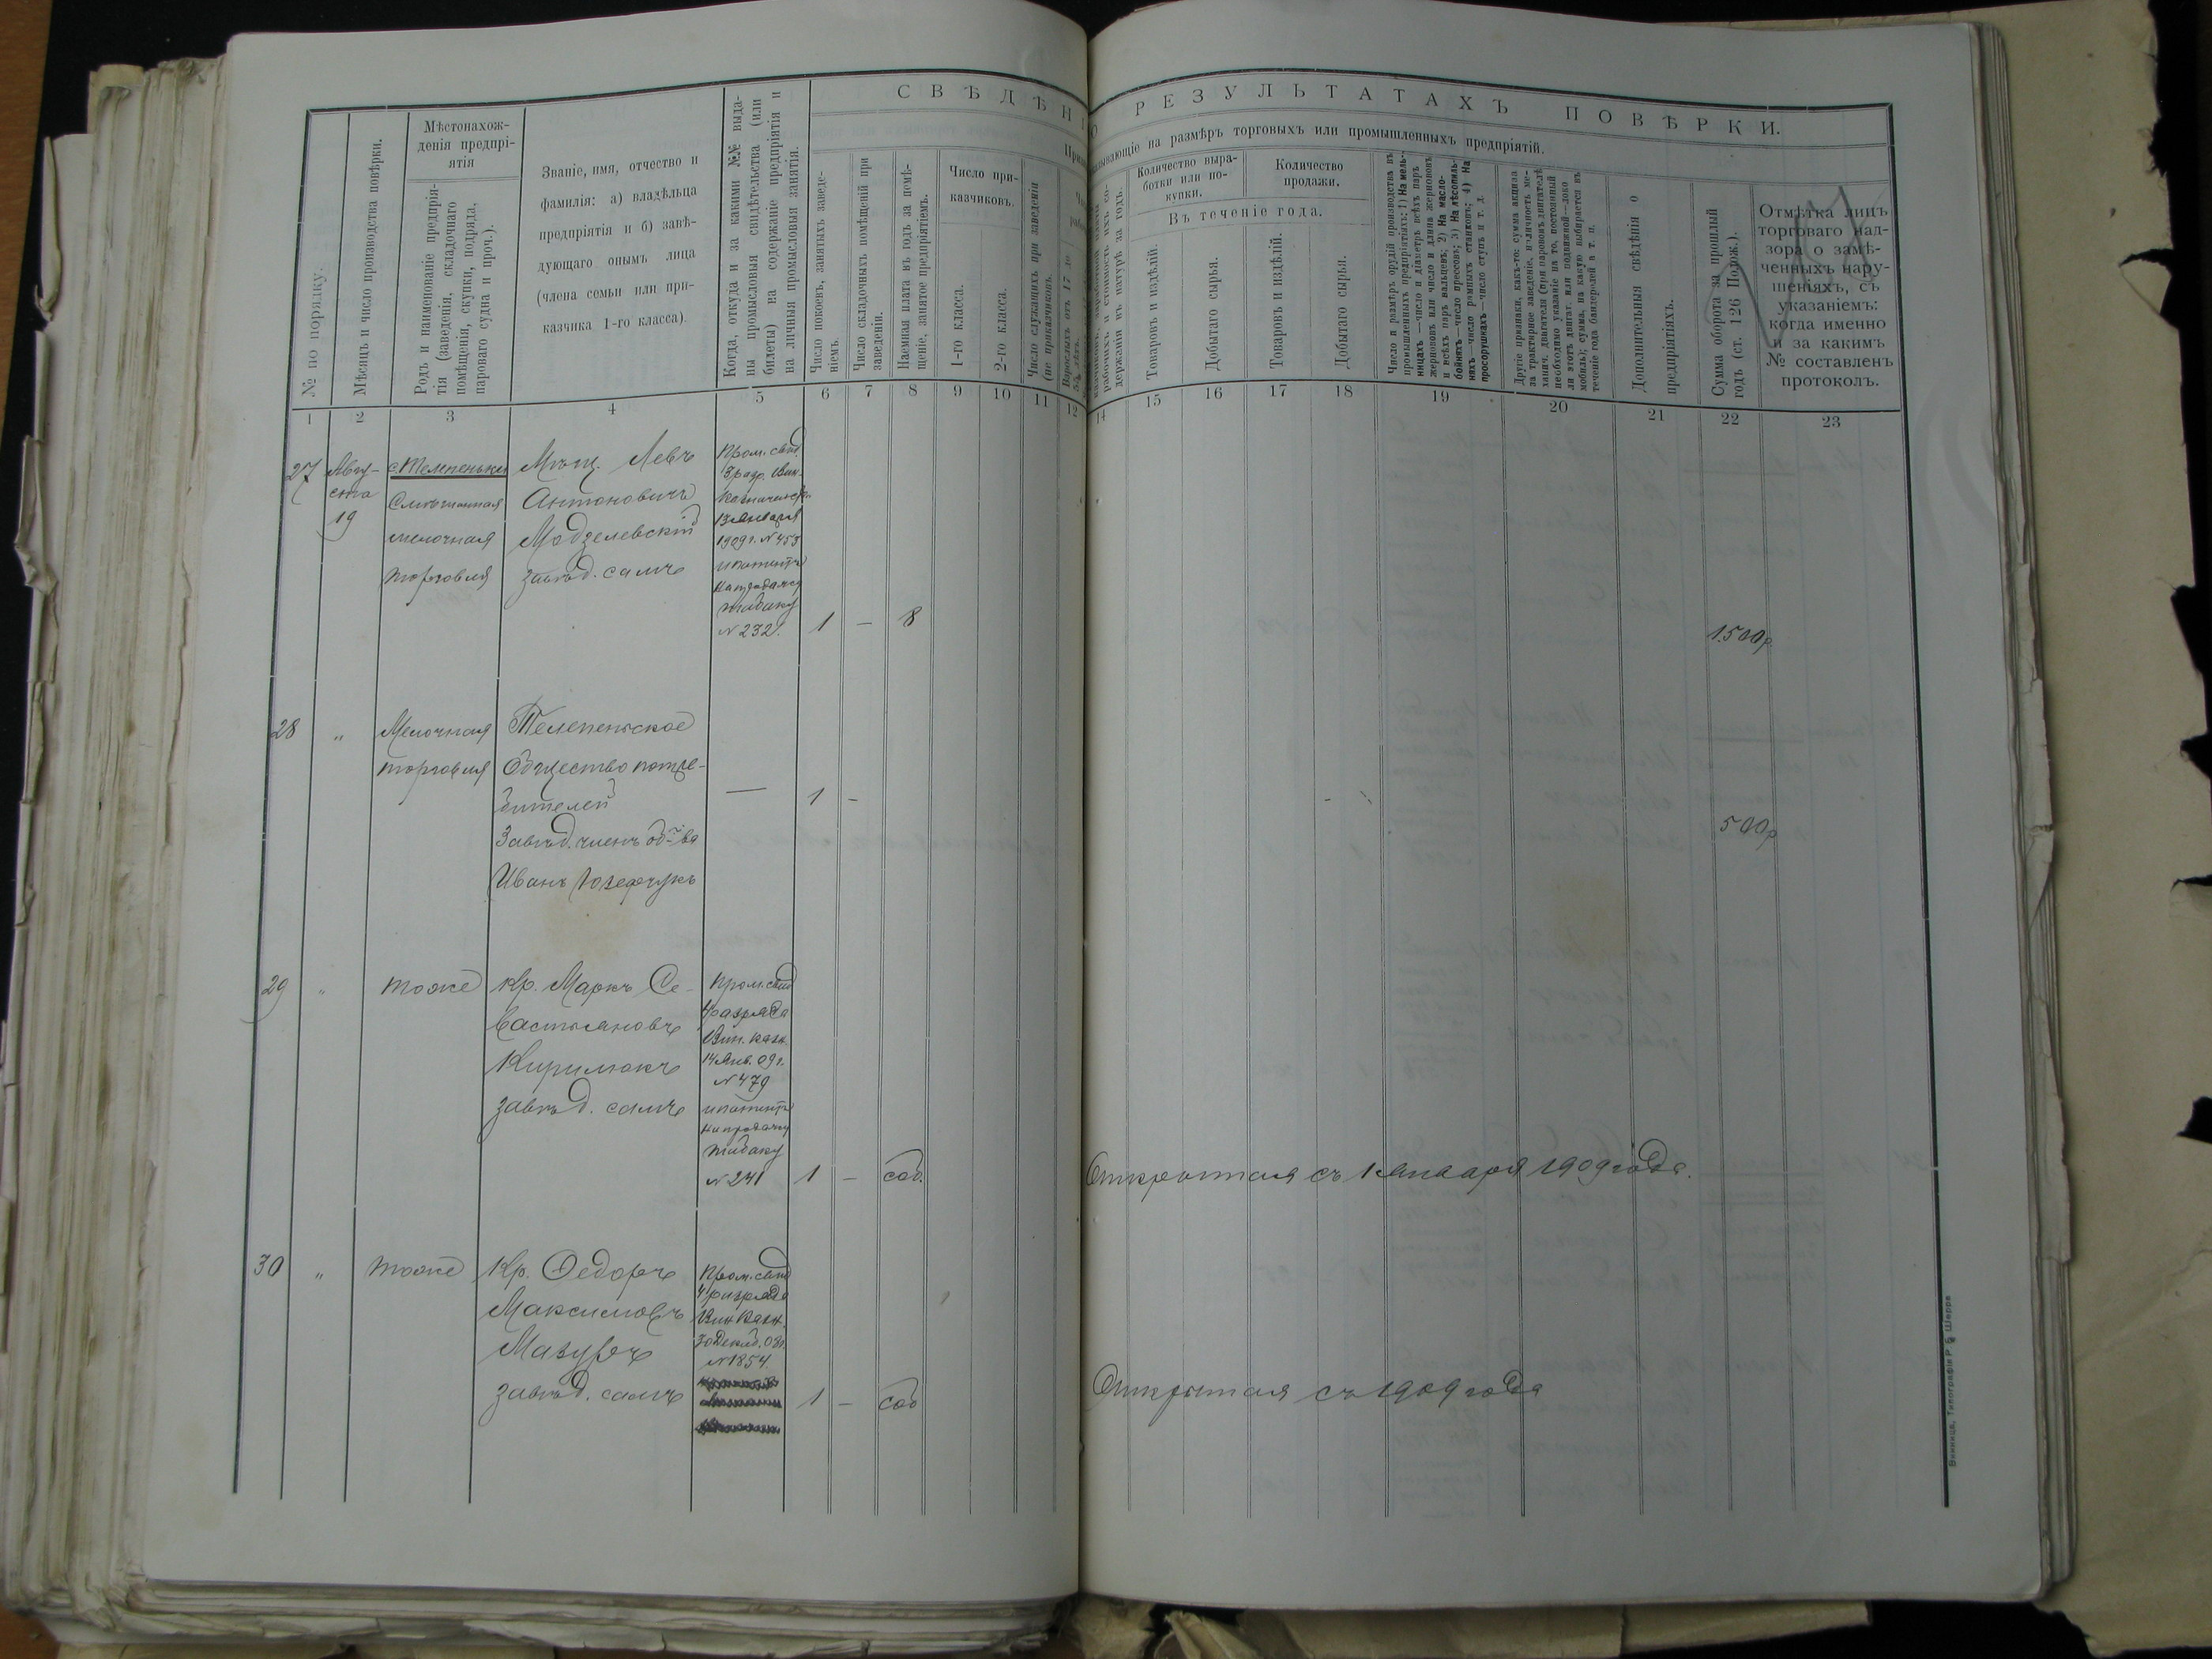 СВѢДѢНІ
О РЕЗУЛЬТАТАХЪ ПОВѢРКИ.
азывающіе на размѣръ торговыхъ или промышленныхъ предпріятій.
№ по порядку.
Мѣсяцъ и число производства повѣрки.
Мѣстонахож-
денія предпрі-
ятія
Родъ и наименованіе предпрія-
тія (заведенія, складочнаго
помѣщенія, скупки, подряда,
пароваго судна и проч.).
Званіе, имя, отчество и
фамилія: а) владѣльца
предпріятія и б) завѣ-
дующаго онымъ лица
(члена семьи или при-
казчика 1-го класса).
Когда, откуда и за какими №№ выда-
ны промысловыя свидѣтельства (или
билеты) на содержаніе предпріятія и
на личныя промысловыя занятія.
Число покоевъ, занятыхъ заведе-
ніемъ.
Число складочныхъ помѣщеній при
заведеніи.
Наемная плата въ годъ за помѣ-
щеніе, занятое предпріятіемъ.
Число при-
казчиковъ.
1-го класса.
2-го класса.
Число служащихъ при заведеніи
(не приказчиковъ.
Взрослыхъ отъ 17 до
рабочихъ и стоимость ихъ со-
держанія въ натурѣ за годъ.
Количество выра-
ботки или по-
купки.
Количество
продажи.
Въ теченіе года.
Товаровъ и издѣлій.
Добытаго сырья.
Товаровъ и издѣлій.
Добытаго сырья.
Число и размѣръ орудій производства въ
промышленныхъ предпріятіяхъ: 1) На мель-
ницахъ—число и діаметръ всѣхъ паръ
жернововъ или число и длина жернововъ
и всѣхъ паръ вальцевъ; 2) На масло-
бойняхъ—число прессовъ; 3) На лѣсопиль-
няхъ—число рамныхъ станковъ; 4) На
просорушкахъ—число ступъ и т. д.
Другіе признаки, какъ-то: сумма акциза
за трактирное заведеніе, наличность ме-
ханич. двигателя (при паровомъ двигателѣ
необходимо указаніе на то, постоянный
ли этотъ двигат. или подвижной—локо
мобиль); сумма, на какую выбирается въ
теченіе года бандеролей и т. п.
Дополнительныя свѣдѣнія о
предпріятіяхъ.
Сумма оборота за прошлый
годъ (ст. 126 Полож.).
Отмѣтка лицъ
торговаго над-
зора о замѣ-
ченныхъ нару-
шеніяхъ, съ
указаніемъ:
когда именно
и за какимъ
№ составленъ
протоколъ.
1 2 3 4 5 6 7 8 9 10 11 12 14 15 16 17 18 19 20 21 22 23
27
Авгу-
ста
19
с. Телепеньки
Смѣшанная
мелочная
торговля
Мѣщ. Левъ
Антоновичъ
Модзелевскій
завѣд. самъ
Пром. свид.
3 разр. Вин.
Казначейст.
13 января
1909 г. № 453
и патентъ
на продажу
табаку
№ 232.
1 — 8
1500 р
28 „
Мелочная
торговля
Телепенское
Общество потре-
бителей
Завѣд. членъ об-ва
Иванъ Іозефчукъ
— 1 -
500 р
29 „
тоже
Кр. Маркъ Се-
вастьяновъ
Киримокъ
завѣд. самъ
Пром. свид
4 разряда
Вин. казн.
14 Янв. 09 г.
№ 479
и патентъ
на продажу
табаку
№ 241
1 — соб.
Открытая съ 1 января 1909 года.
30 „
тоже
Кр. Федоръ
Максимовъ
Мазуръ
завѣд. самъ
Пром. свид
4 разряда
Вин Казн.
30 Декаб. 08 г.
№ 1854
1 — соб
Открытая съ 1909 года
Винница, Типографія Р. Б. Шерра